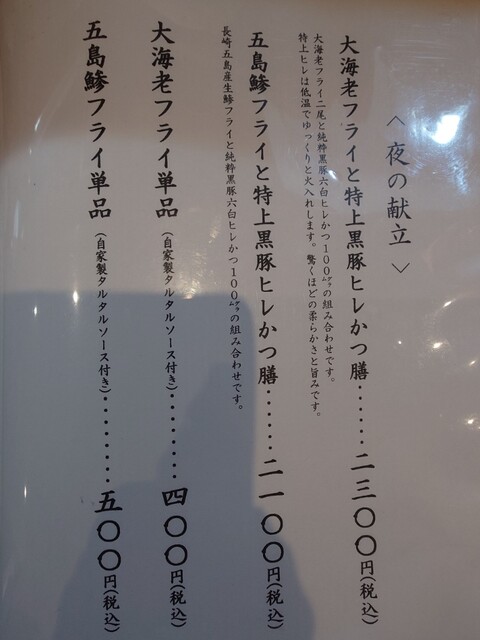 〈夜の献立〉
大海老フライと特上黒豚ヒレかつ膳.......二三〇〇円(税込)
大海老フライ二尾と純粋黒豚六白ヒレかつ100㌘の組み合わせです。
特上ヒレは低温でゆっくりと火入れします。驚くほどの柔らかさと旨みです。
五島鯵フライと特上黒豚ヒレかつ膳.......二一〇〇円(税込)
長崎五島産生鯵フライと純粋黒豚六白ヒレかつ100㌘の組み合わせです。
大海老フライ単品(自家製タルタルソース付き).........四〇〇円(税込)
五島鯵フライ単品(自家製タルタルソース付き).........五〇〇円(税込)